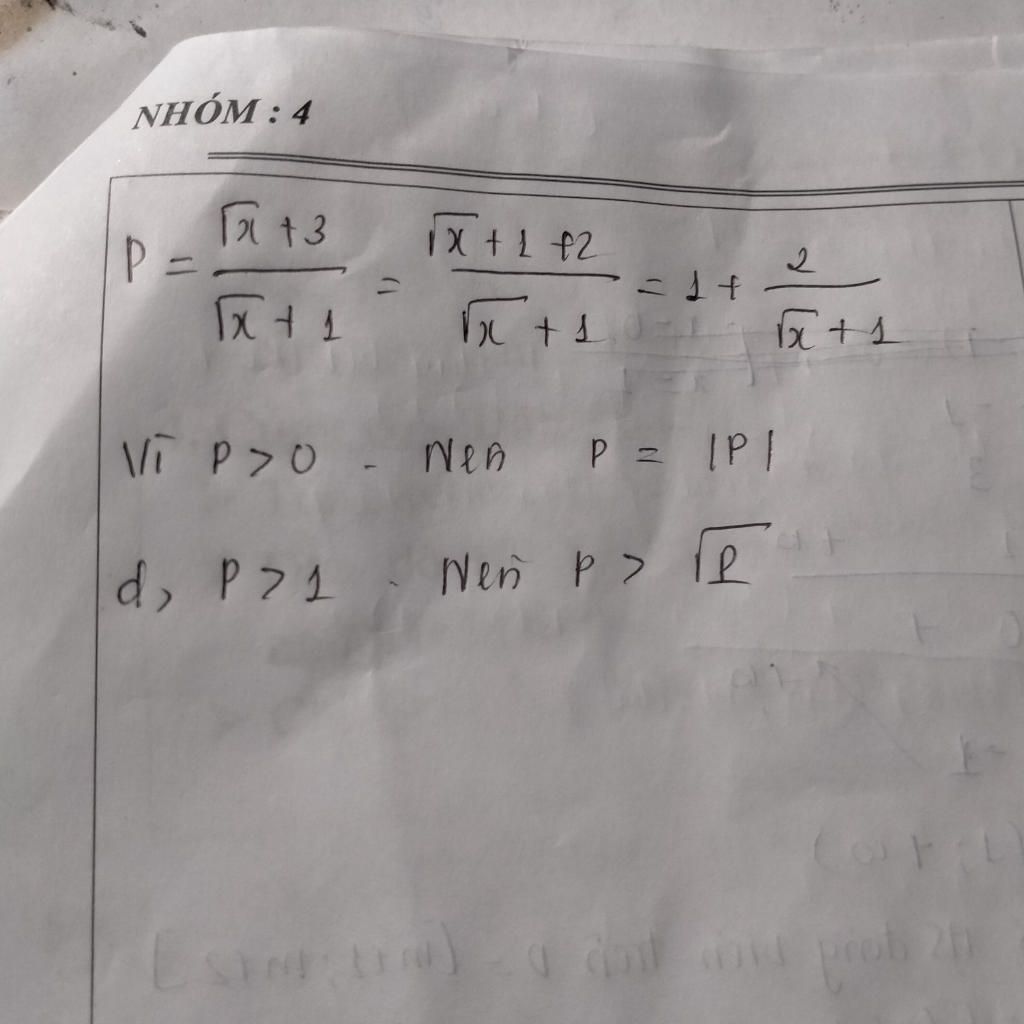 NHÓM : 4
P = (√x + 3)/(√x + 1) = (√x + 1 + 2)/(√x + 1) = 1 + 2/(√x + 1)
Vì P > 0 - Nên P = |P|
d, P > 1 . Nên P > √P